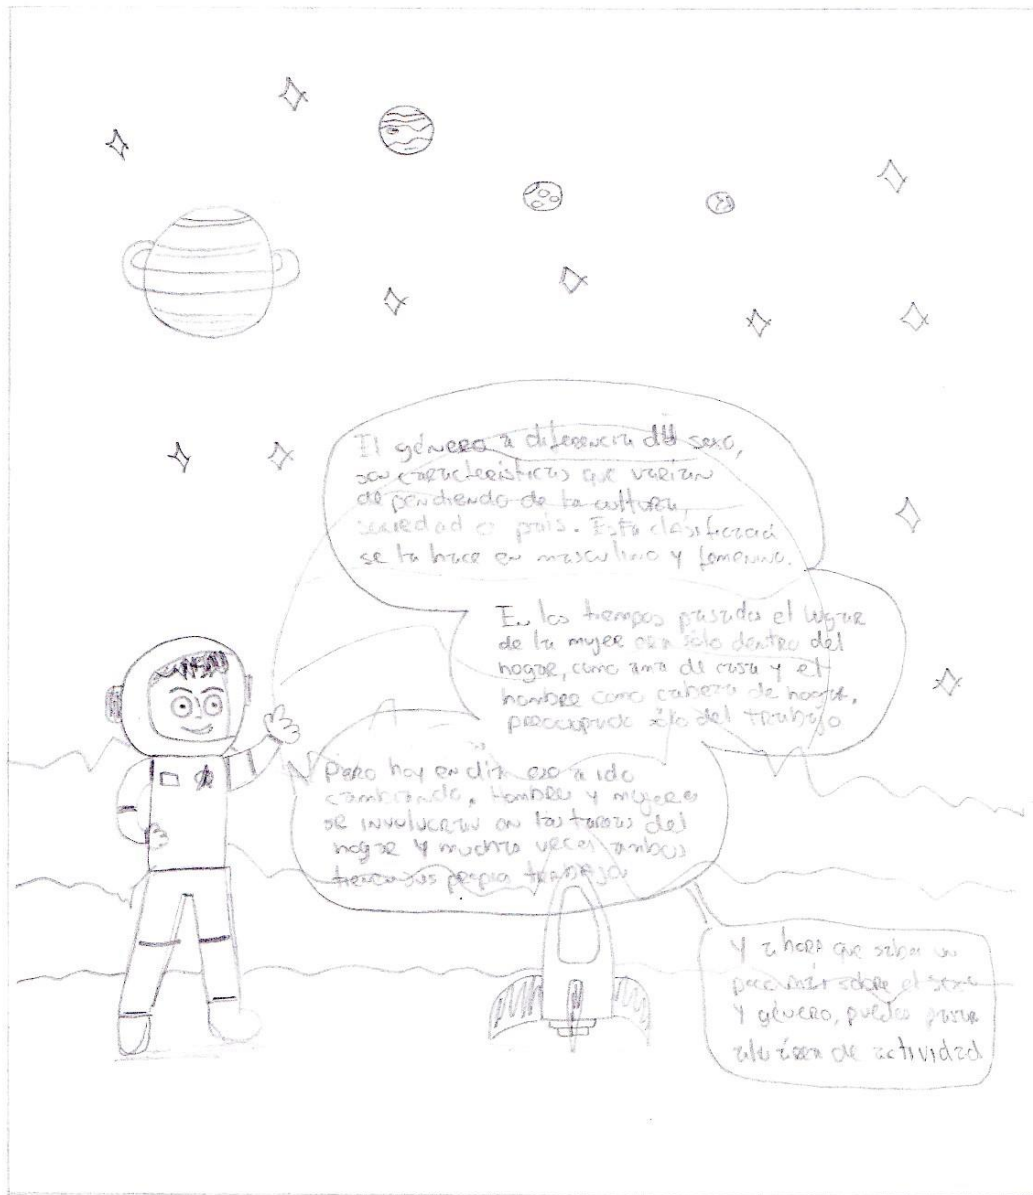 El género a diferencia del sexo,
son características que varían
dependiendo de la cultura,
sociedad o país. Esta clasificació
se la hace en masculino y femenino.
En los tiempos pasados el lugar
de la mujer era sólo dentro del
hogar, como ama de casa y el
hombre como cabeza de hogar,
preocupado sólo del trabajo
Pero hoy en día eso a ido
cambiando. Hombres y mujeres
se involucran en las tareas del
hogar y muchas veces ambos
tienen sus propio trabajo
Y ahora que sabes un
poco más sobre el sexo
y género, puedes pasar
al área de actividad